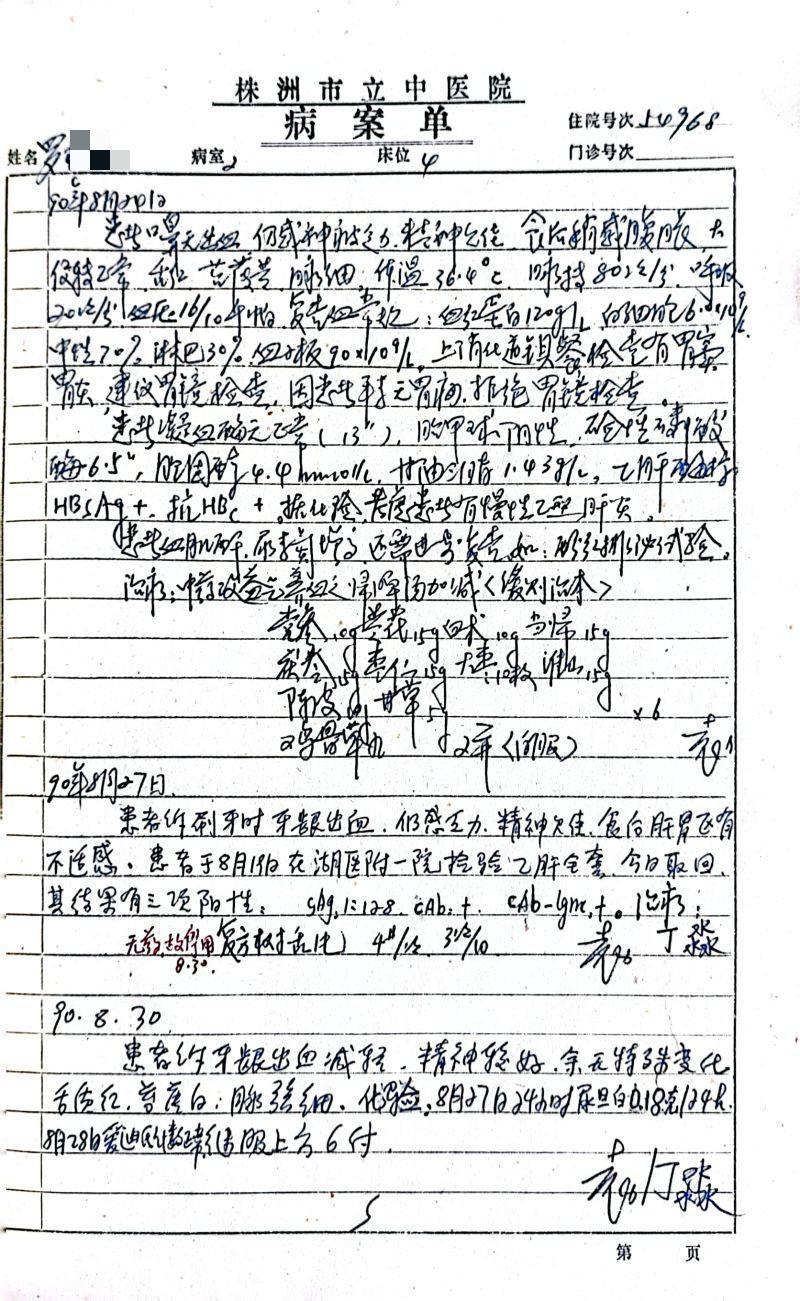 株洲市立中医院
病案单
住院号次 54968
姓名 罗 病室 2 床位 4 门诊号次
90年8月24日
患者口鼻无出血,仍感神疲乏力,精神欠佳,食后稍感腹胀,大
便转正常,舌红,苔薄黄,脉细,体温36.4℃,脉搏80次/分,呼吸
20次/分,血压16/10千帕,复查血常规:血红蛋白120g/L,白细胞6.0×10⁹/L
中性70%,淋巴30%,血小板90×10⁹/L,上消化道钡餐检查有胃窦
胃炎,建议胃镜检查,因患者平素无胃病,拒绝胃镜检查。
患者凝血酶元正常(13"),胎甲球阴性,碱性磷酸
酶6.5",胆固醇4.4mmol/L,甘油三酯1.43g/L,乙肝
HBsAg+,抗HBc+,据化验,考虑患者有慢性乙型肝炎。
患者血肌酐,尿素氮增高,还需进一步复查,如:酚红排泄试验。
治疗:中药以益气养血之归脾汤加减(缓则治本)
党参10g 黄芪15g 白术10g 当归15g
茯苓15g 枣仁15g 大枣10枚 淮山15g
陈皮10g 甘草5g ×6
2瓶(间服)
90年8月27日
患者仍刷牙时牙龈出血,仍感乏力,精神欠佳,食后肝胃区有
不适感。患者于8月19日在湖医附一院检验乙肝全套,今日取回,
其结果有三项阳性:sAg,1:128,cAb:+,cAb-Igm,+。治疗:
无药,故停用 复方树舌片 4#/次 3次/日 丁淼
8.30.
90.8.30
患者仍牙龈出血减轻,精神较好,余无特殊变化
舌质红,苔薄白,脉弦细。化验:8月27日24小时尿蛋白0.18克/24h.
8月28日爱迪氏计数正常,继服上方6付.
丁淼
5
第 页